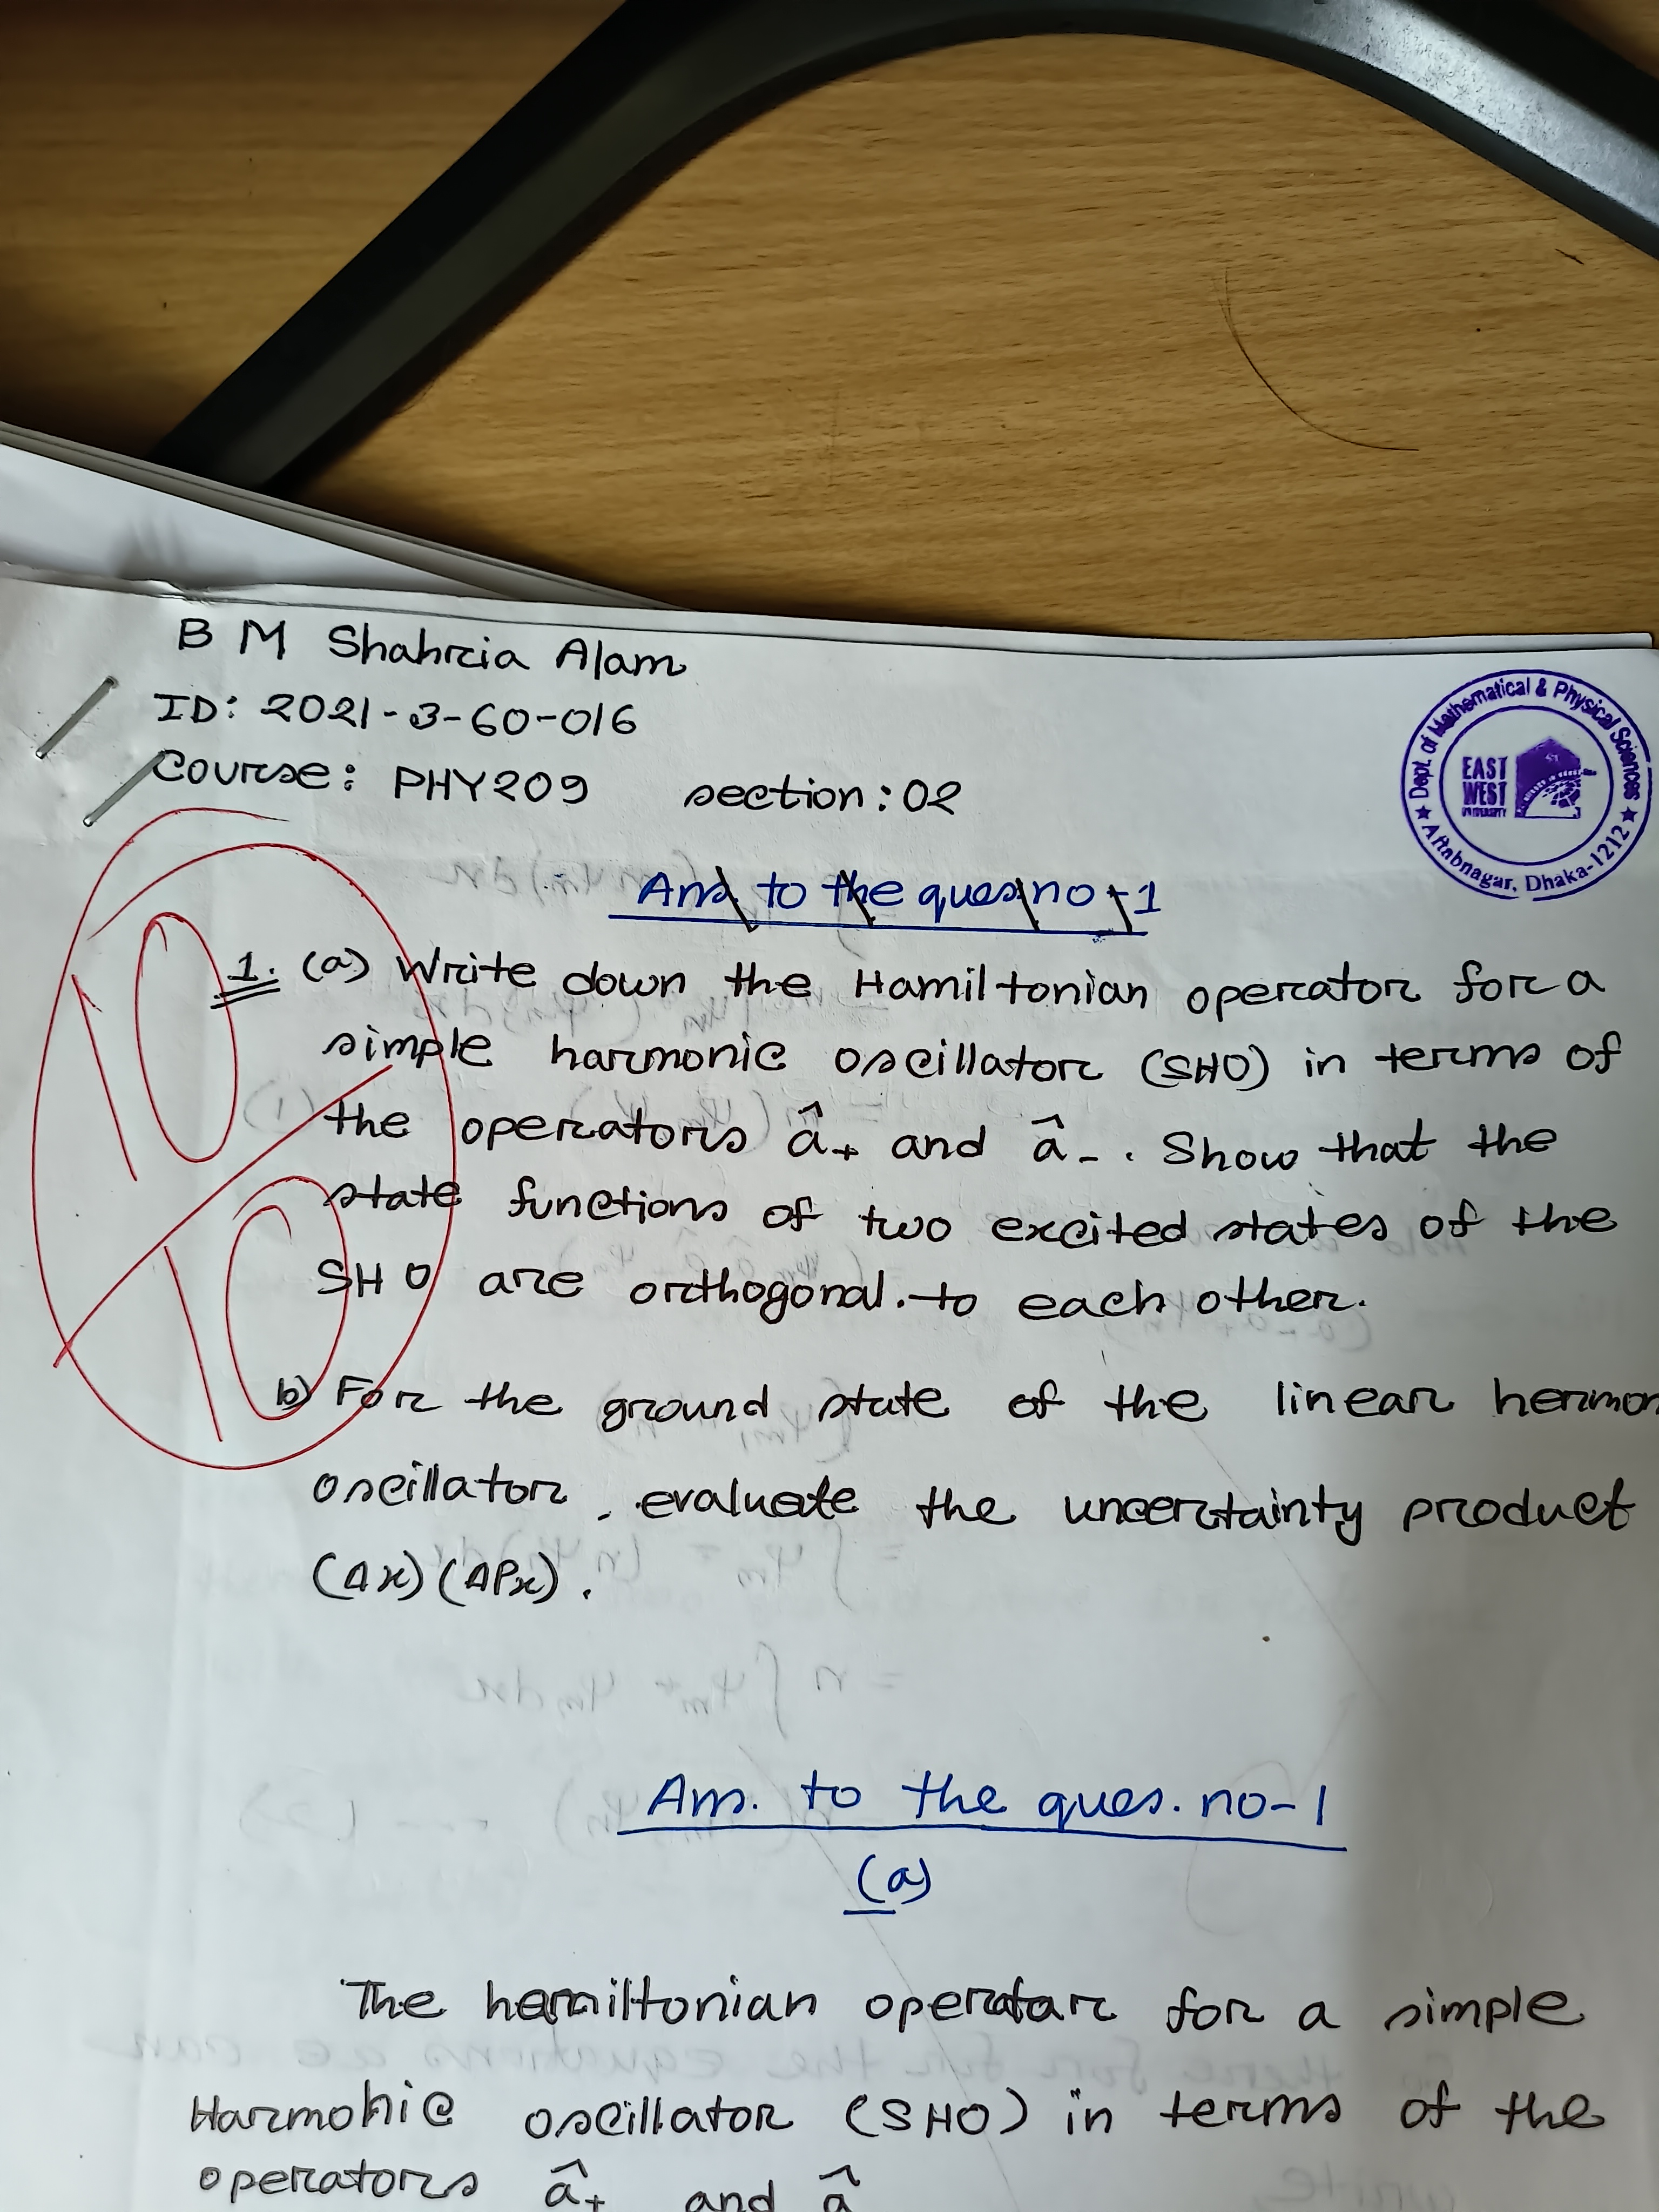 B M Shahrcia Alam
ID: 2021-3-60-016
Course: PHY209 section: 02
Dept. of Mathematical & Physical Sciences
EAST
WEST
UNIVERSITY
★ Aftabnagar, Dhaka-1212 ★
Ans to the ques no-1
10
10
1. (a) Write down the Hamiltonian operator for a
simple harmonic oscillator (SHO) in terms of
the operators â₊ and â₋. Show that the
state functions of two excited states of the
SHO are orthogonal. to each other.
b) For the ground state of the linear hermon
oscillator, evaluate the uncertainty product
(Δx)(ΔPx).
Ans. to the ques. no-1
(a)
The hamiltonian operator for a simple
Harmonic oscillator (SHO) in terms of the
operators â₊ and â